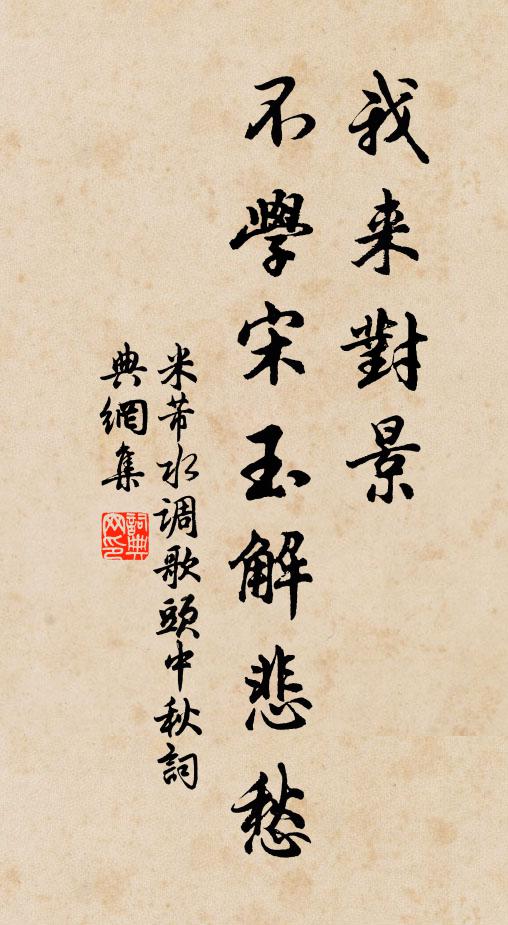 我来對景
不學宋玉解悲愁
米芾水调歌頭中秋詞
典網集
詞典网印